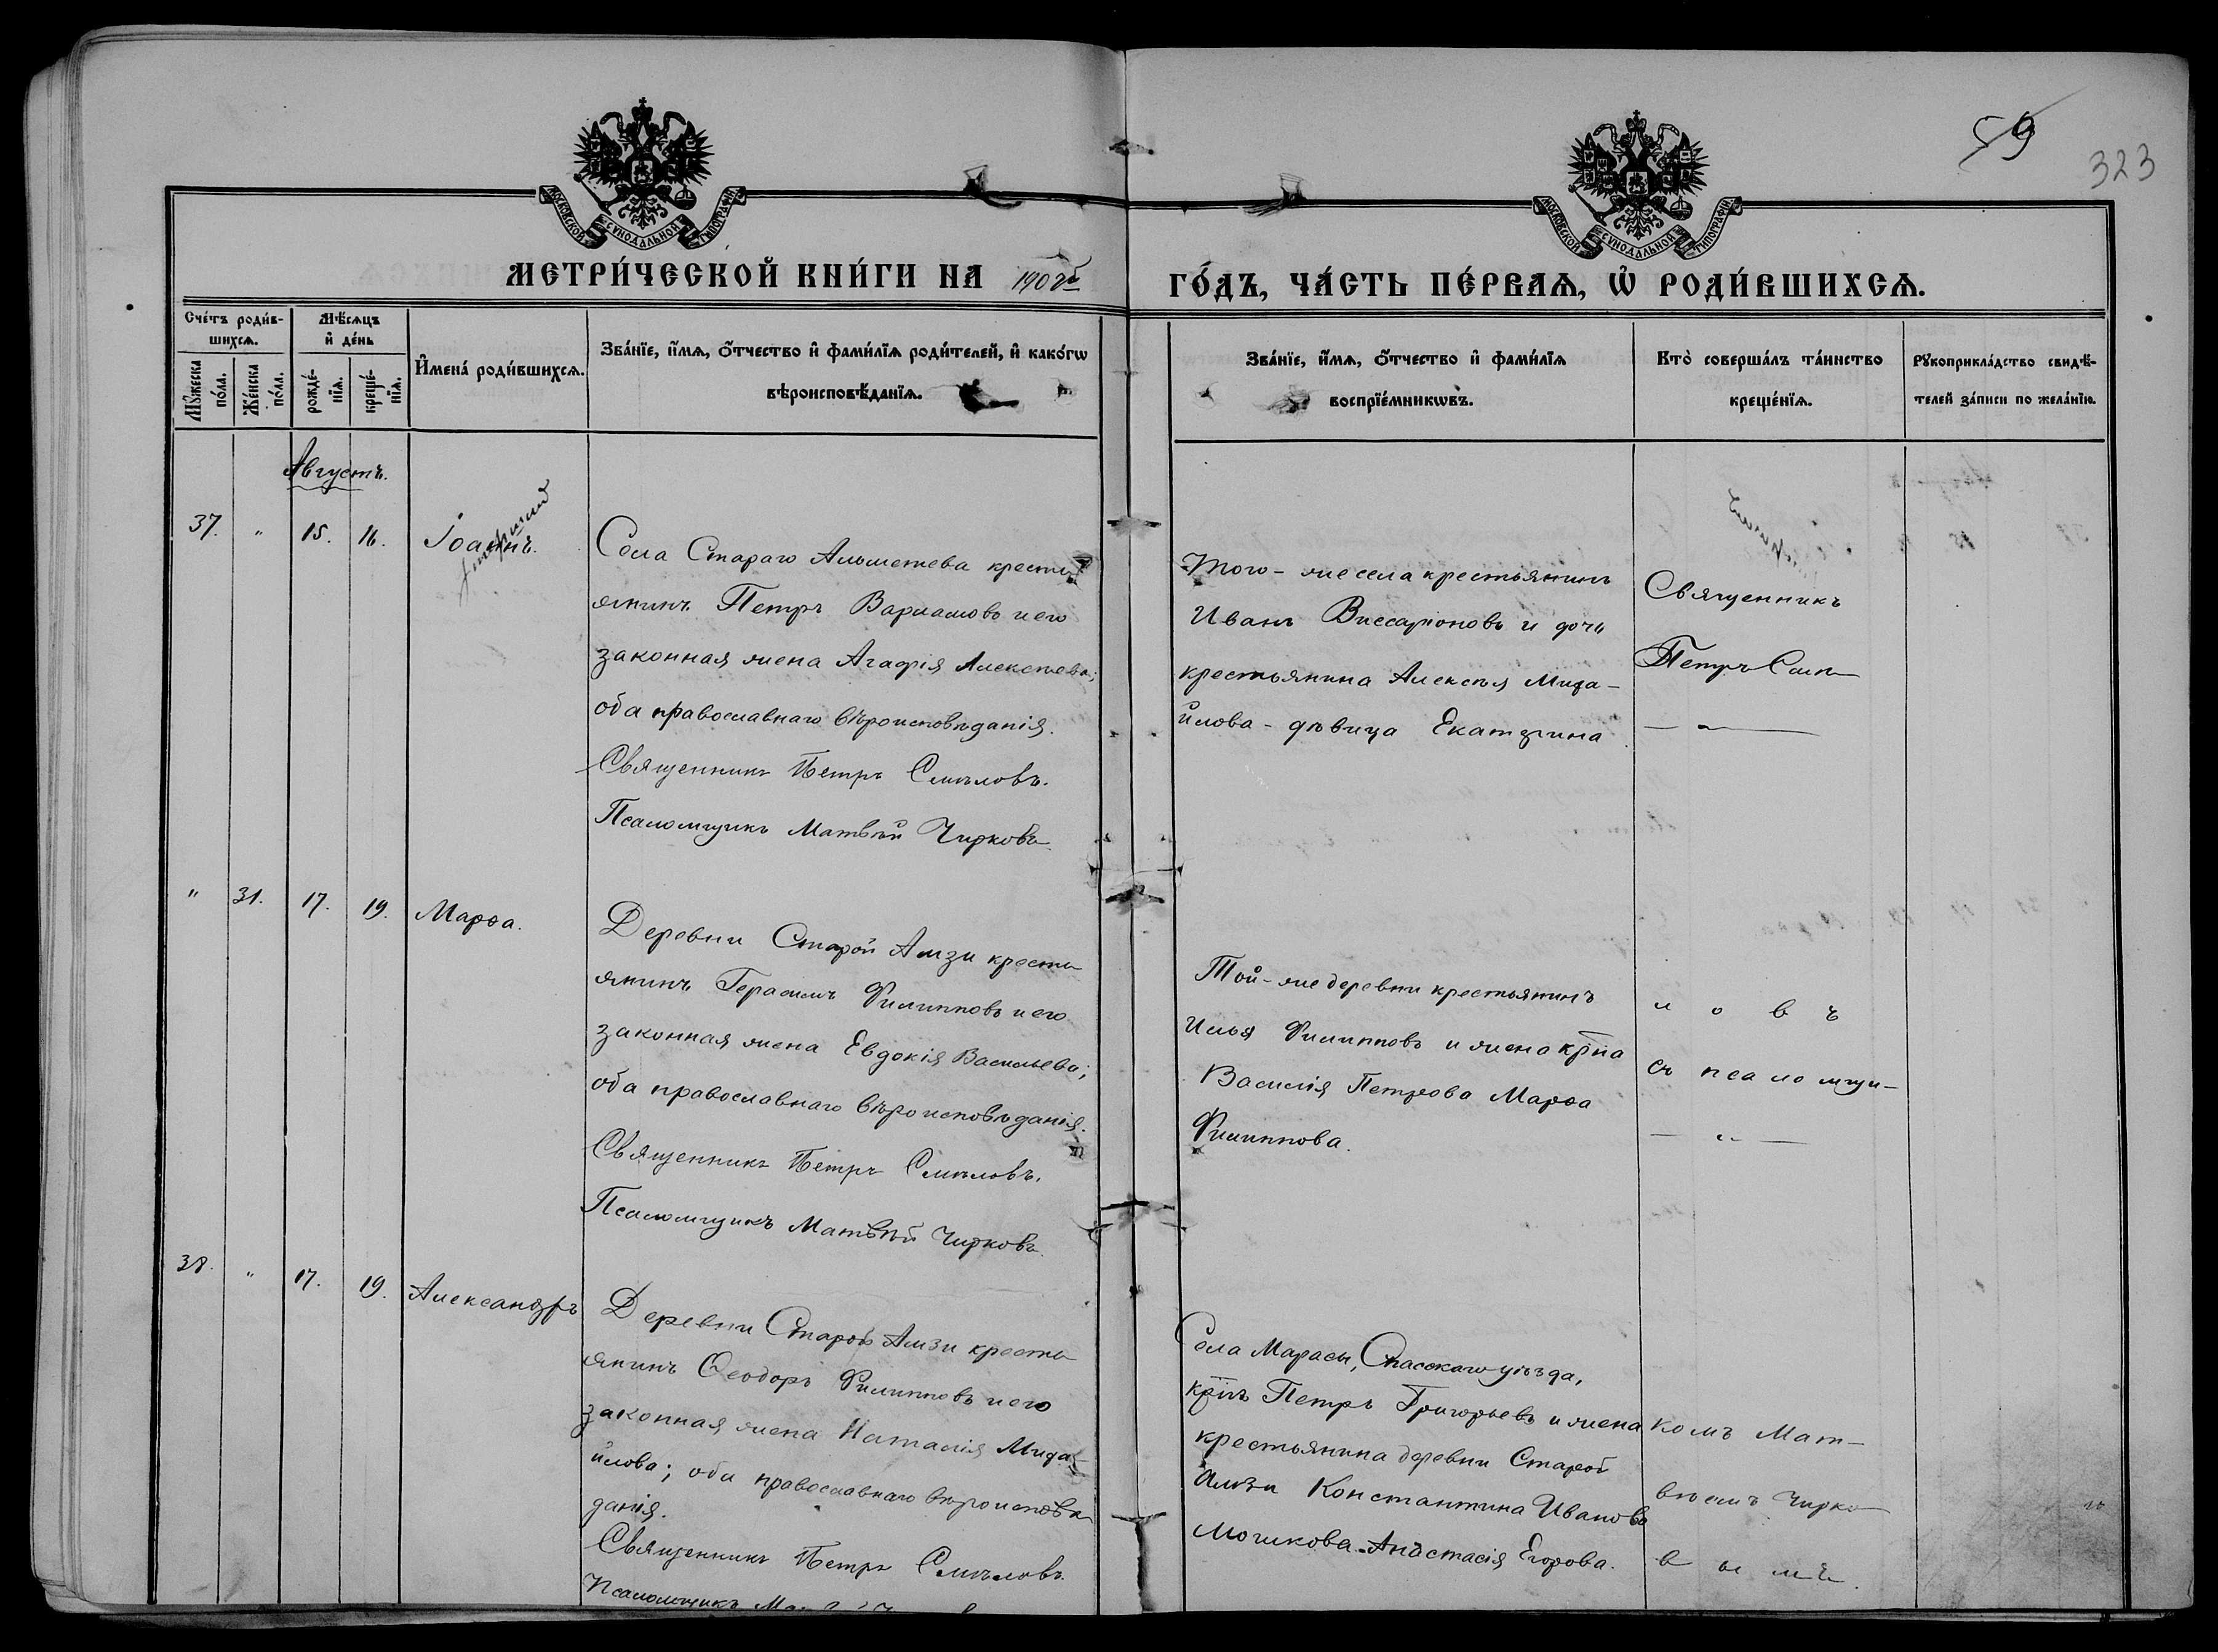 59
323
МОСКОВСКОЙ СѴНОДАЛЬНОЙ ТИПОГРАФІИ
МОСКОВСКОЙ СѴНОДАЛЬНОЙ ТИПОГРАФІИ
МЕТРИ́ЧЕСКОЙ КНИ́ГИ НА
ГО́ДЪ, ЧА́СТЬ ПЕ́РВАѦ, Ѽ РОДИ́ВШИХСѦ.
Сче́тъ роди́в-
шихсѧ.
Мꙋ́жеска по́ла.
Же́нска по́ла.
Мѣ́сѧцъ
и҆ де́нь
рожде́-
нїѧ.
креще́-
нїѧ.
И҆мена̀ роди́вшихсѧ.
Зва́нїе, и҆́мѧ, ѻ҆́тчество и҆ фами́лїѧ роди́телей, и҆ како́гѡ
вѣроисповѣ́данїѧ.
Зва́нїе, и҆́мѧ, ѻ҆́тчество и҆ фами́лїѧ
воспрїе́мникѡвъ.
Кто̀ соверша́лъ та́инство
креще́нїѧ.
Рꙋкоприкла́дство свидѣ́-
телей за́писи по жела́нїю.
Августъ.
37. " 15. 16. Іоаннъ.
Села Стараго Альметева кресть
янинъ Петръ Варламовъ и его
законная жена Агафія Алексѣева;
оба православнаго вѣроисповѣданія.
Священникъ Петръ Смѣловъ.
Псаломщикъ Матвѣй Чирковъ.
Того-же села крестьянинъ
Иванъ Виссаріоновъ и дочь
крестьянина Алексѣя Миха-
йлова - дѣвица Екатерина.
Священникъ
Петръ Смѣ
" 31. 17. 19. Марѳа.
Деревни Старой Амзи кресть
янинъ Герасимъ Филипповъ и его
законная жена Евдокія Васильева;
оба православнаго вѣроисповѣданія.
Священникъ Петръ Смѣловъ.
Псаломщикъ Матвѣй Чирковъ.
Той-же деревни крестьянинъ
Илья Филипповъ и жена кр̅на
Василія Петрова Марѳа
Филиппова.
л о в ъ
съ псаломщи-
— " —
38. " 17. 19. Александръ
Деревни Старой Амзи кресть
янинъ Ѳеодоръ Филипповъ и его
законная жена Наталія Миха-
йлова; оба православнаго вѣроисповѣ
данія.
Священникъ Петръ Смѣловъ.
Псаломщикъ
Села Марасы, Спасскаго уѣзда,
кр̅нъ Петръ Григорьевъ и жена
крестьянина деревни Старой
Амзи Константина Иванова
Мошкова Анастасія Егорова.
комъ Мат-
вѣемъ Чирко
в ы мъ.